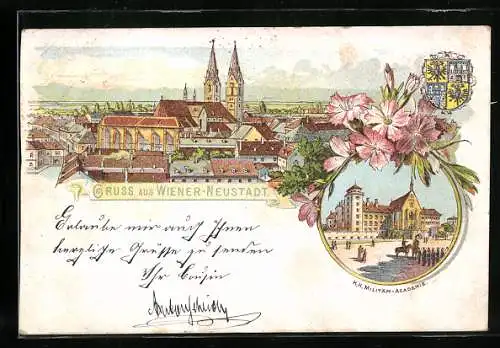 GRUSS AUS WIENER-NEUSTADT
Erlaube mir auch Ihnen
herzliche Grüsse zu senden
Ihr Cousin
K.K. MILITÄR-ACADEMIE.